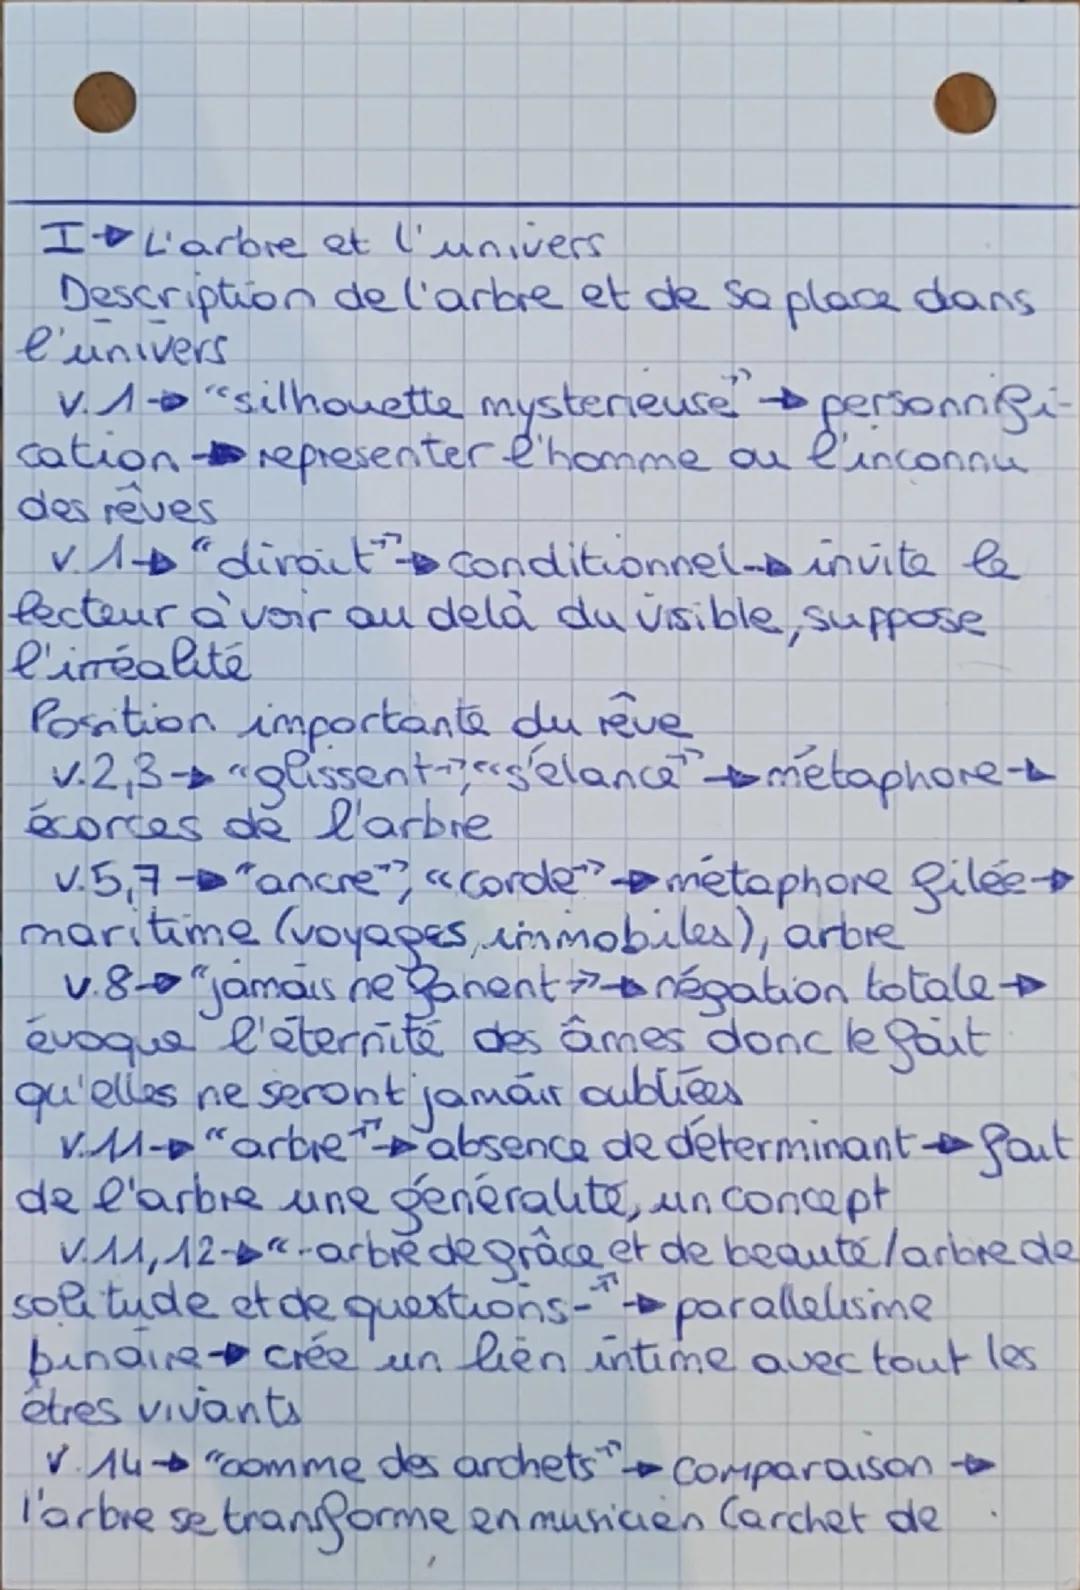 I→ L'arbre et l'univers
Description de l'arbre et de sa place dans
l'univers
v.1→ "silhouette mysterieuse" → personnifi-
cation → representer l'homme ou l'inconnu
des rêves
v.1→ "dirait" → conditionnel → invite le
lecteur à voir au delà du visible, suppose
l'irréalité
Position importante du rêve
v.2,3→ "glissent", "s'élance" → métaphore →
écorces de l'arbre
v.5,7→ "ancre", "corde" → métaphore filée →
maritime (voyages, immobiles), arbre
v.8→ "jamais ne fanent" → négation totale →
évoque l'éternité des âmes donc le fait
qu'elles ne seront jamais oubliées
v.11→ "arbre" → absence de déterminant → fait
de l'arbre une généralité, un concept
v.11,12→ "-arbre de grâce et de beauté/arbre de
solitude et de questions-" → parallelisme
binaire → crée un lien intime avec tout les
êtres vivants
v.14→ "comme des archets" → comparaison →
l'arbre se transforme en musicien (archet de